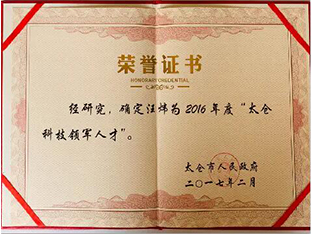 荣誉证书
HONORARY CREDENTIAL
经研究，确定汪炜为2016年度“太仓
科技领军人才”。
太仓市人民政府
二〇一七年二月